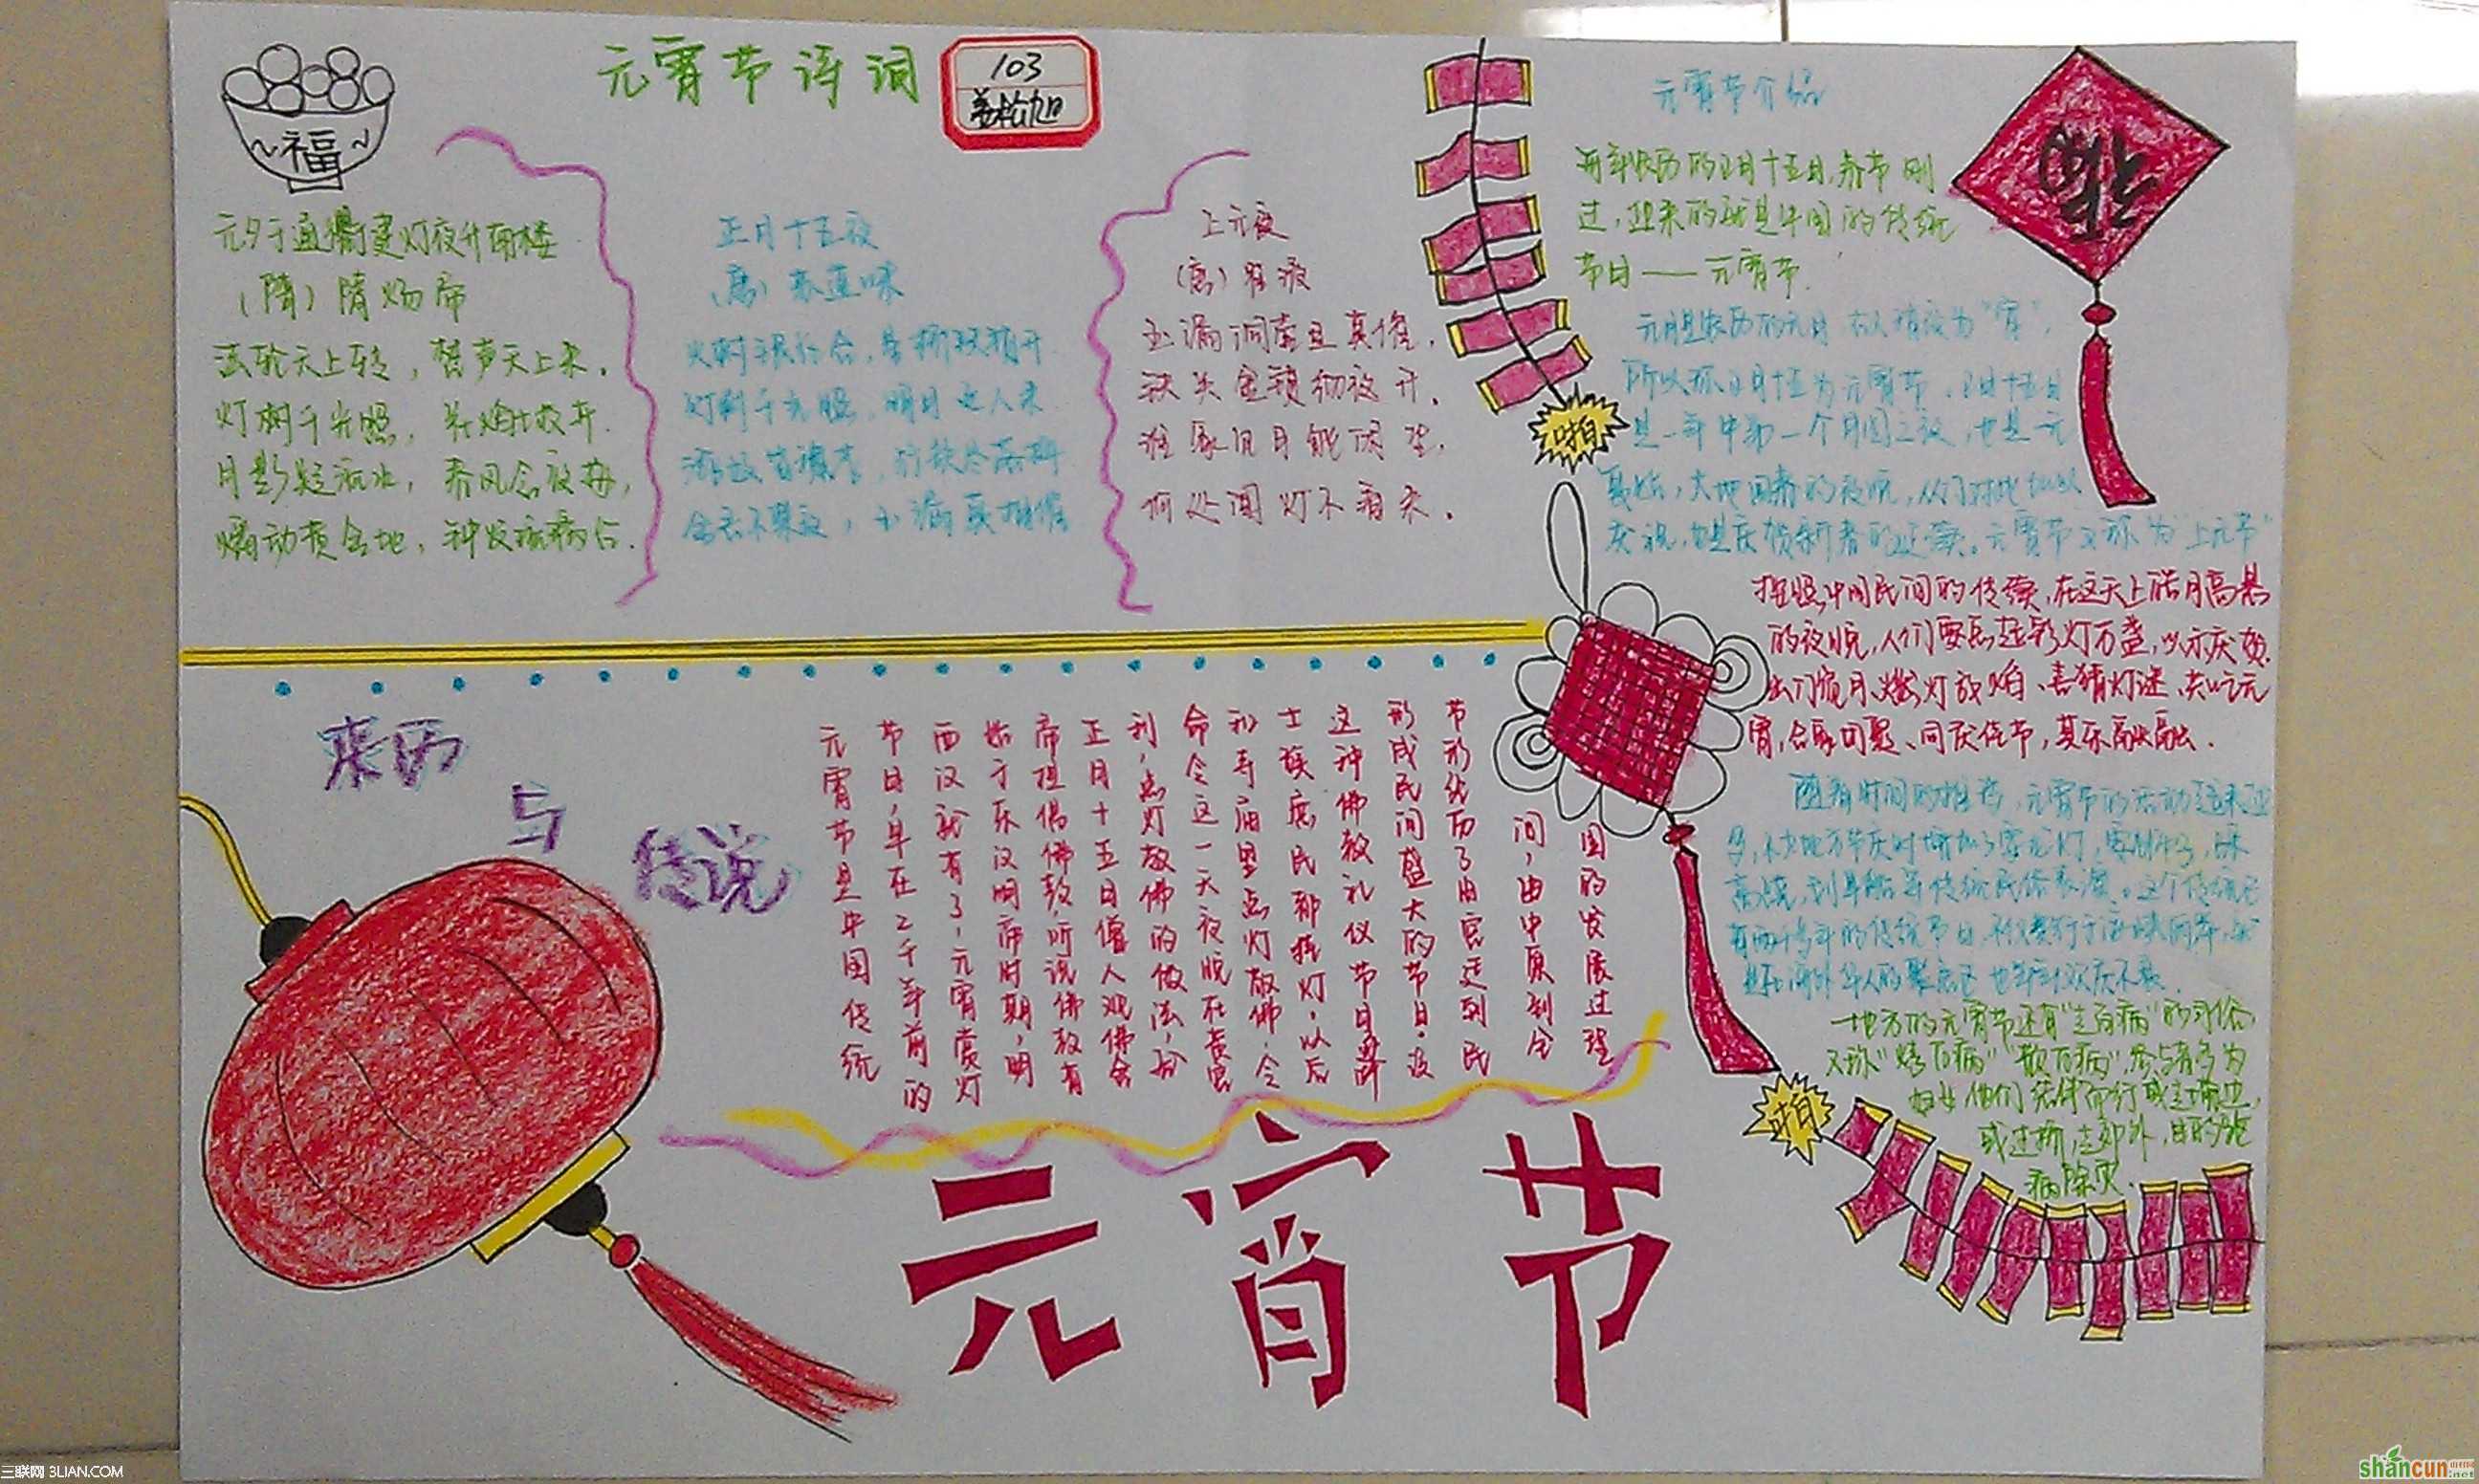 元宵节诗词
103
福
元夕于通衢建灯夜升南楼
（隋）隋炀帝
法轮天上转，梵声天上来。
灯树千光照，花焰七枝开.
月影疑流水，春风含夜梅，
燔动黄金地，钟发琉璃台.
正月十五夜
火树银花合，星桥
灯树千光照，明月逐人来
游妓皆秾李，行歌尽落梅
金吾不禁夜，玉漏莫相催
上元夜
（唐）崔液
玉漏
铁关金锁彻夜开，
谁家见月能闲坐，
何处闻灯不看来。
啪
元宵节介绍
每年农历的正月十五日，春节刚
过，迎来的就是中国的传统
节日——元宵节.
元月是农历的元月 古人称夜为“宵”，
所以称正月十五为元宵节，正月十五日
是一年中第一个月圆之夜，也是一元
复始，大地回春的夜晚，人们对此加以
庆祝，也是庆贺新春的延续。元宵节又称为“上元节”
按照中国民间的传统，在这天上皓月高悬
的夜晚，人们要点起彩灯万盏，以示庆贺.
出门赏月、燃灯放焰、喜猜灯谜、共吃元
宵，合家团聚、同庆佳节，其乐融融.
随着时间的推移，元宵节的活动越来越
多，不少地方节庆时增加了耍龙灯，耍狮子，踩
高跷，划旱船等传统民俗表演。这个传统已
有两千多年的传统节日，不仅盛行于海峡两岸，就
是在海外华人的聚居区也年年欢庆不衰.
一地方的元宵节还有“走百病”的习俗，
又称“烤百病”“散百病”，参与者多为
妇女他们 结伴而行或走墙边，
或过桥，走郊外，目的是驱
病除灾.
啪
来历
与
传说
元宵节是中国传统
节日，早在2千年前的
西汉就有了，元宵赏灯
始于东汉明帝时期，明
帝提倡佛教，听说佛教有
正月十五日僧人观佛舍
利，点灯敬佛的做法，就
命令这一天夜晚在皇宫
和寺庙里点灯敬佛，令
士族庶民都挂灯，以后
这种佛教礼仪节日逐渐
形成民间盛大的节日。该
节形经历了由宫廷到民
间，由中原到全
国的发展过程
元宵节
三联网 3LIAN.COM
shancun
.net